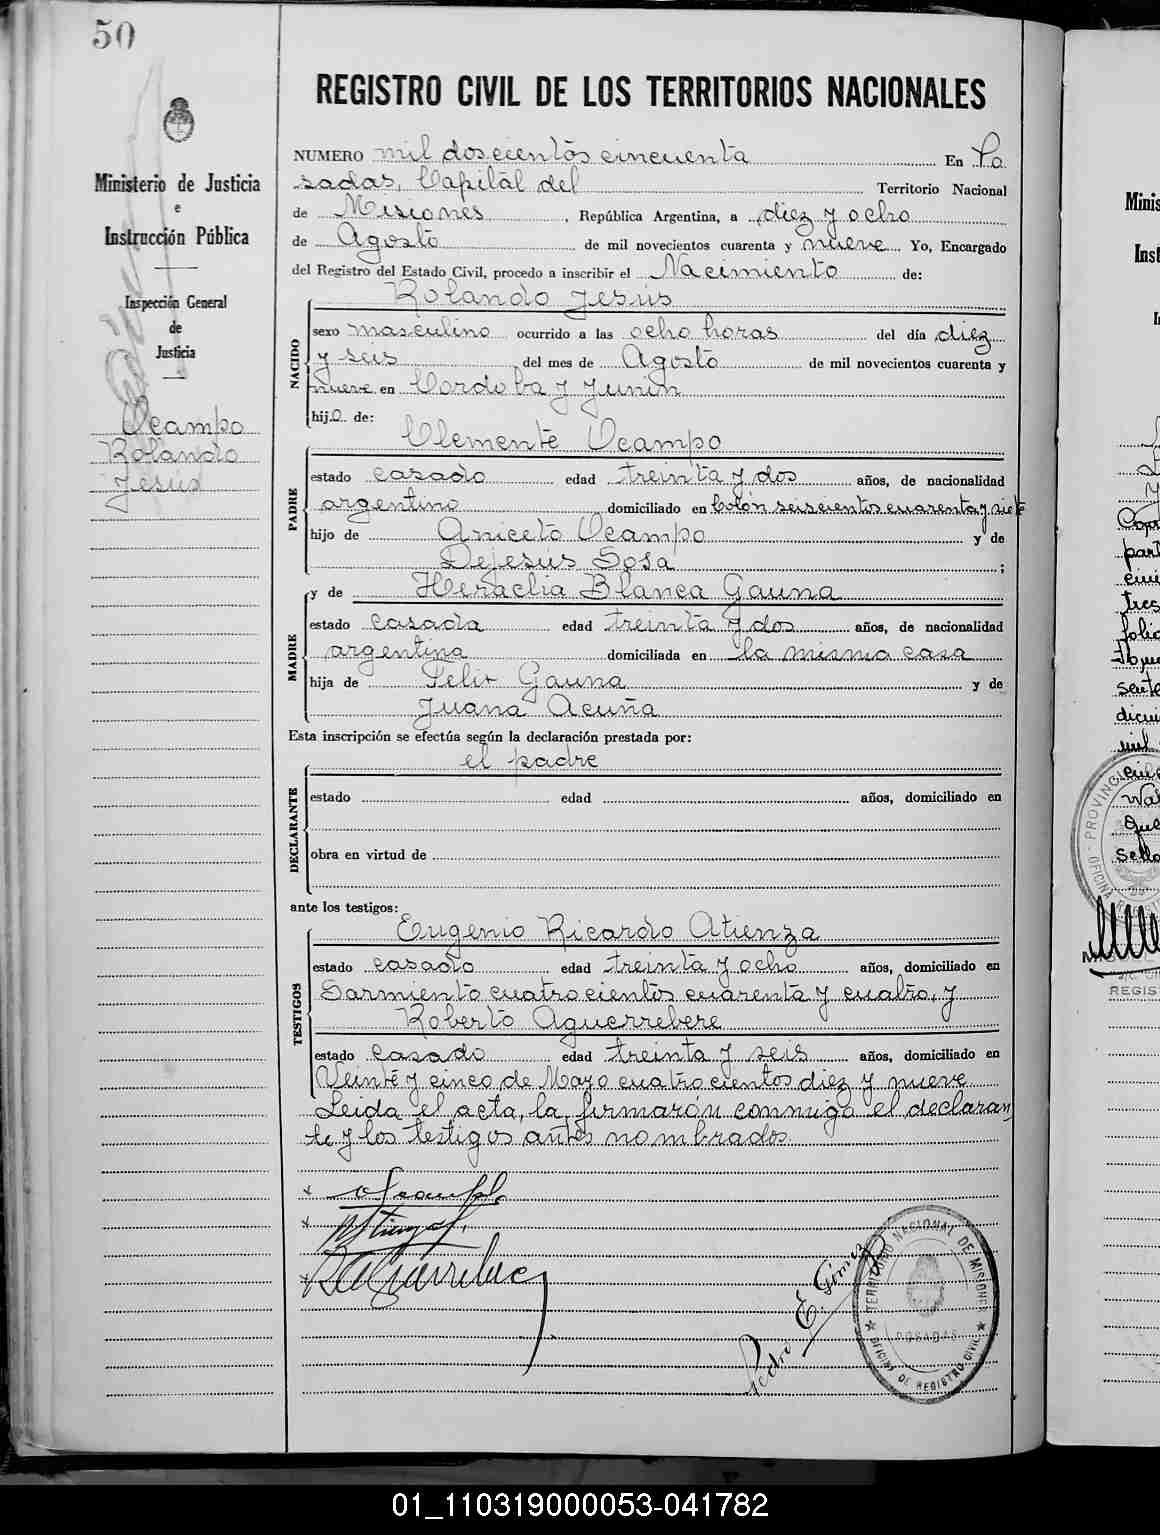 50
Ministerio de Justicia
e
Instrucción Pública
Inspección General
de
Justicia
Ocampo
Rolando
Jesús
REGISTRO CIVIL DE LOS TERRITORIOS NACIONALES
NUMERO mil doscientos cincuenta En Po
sadas, Capital del Territorio Nacional
de Misiones, República Argentina, a diez y ocho
de Agosto de mil novecientos cuarenta y nueve Yo, Encargado
del Registro del Estado Civil, procedo a inscribir el Nacimiento de:
Rolando Jesús
NACIDO
sexo masculino ocurrido a las ocho horas del día diez
y seis del mes de Agosto de mil novecientos cuarenta y
nueve en Cordoba y Junin
hijo de:
Clemente Ocampo
PADRE
estado casado edad treinta y dos años, de nacionalidad
argentino domiciliado en Colón seiscientos cuarenta y siete
hijo de Aniceto Ocampo y de
Dejesús Sosa ;
y de Heraclia Blanca Gauna
MADRE
estado casada edad treinta y dos años, de nacionalidad
argentina domiciliada en la misma casa
hija de Felix Gauna y de
Juana Acuña
Esta inscripción se efectúa según la declaración prestada por:
el padre
DECLARANTE
estado edad años, domiciliado en
obra en virtud de
ante los testigos:
Eugenio Ricardo Atienza
TESTIGOS
estado casado edad treinta y ocho años, domiciliado en
Sarmiento cuatrocientos cuarenta y cuatro, y
Roberto Aguerrebere
estado casado edad treinta y seis años, domiciliado en
Veinte y cinco de Mayo cuatrocientos diez y nueve
Leida el acta, la firmarón conmigo el declaran
te y los testigos antes nombrados.
Pedro E. Gómez
TERRITORIO NACIONAL DE MISIONES
POSADAS
OFICINA DE REGISTRO CIVIL
01_110319000053-041782